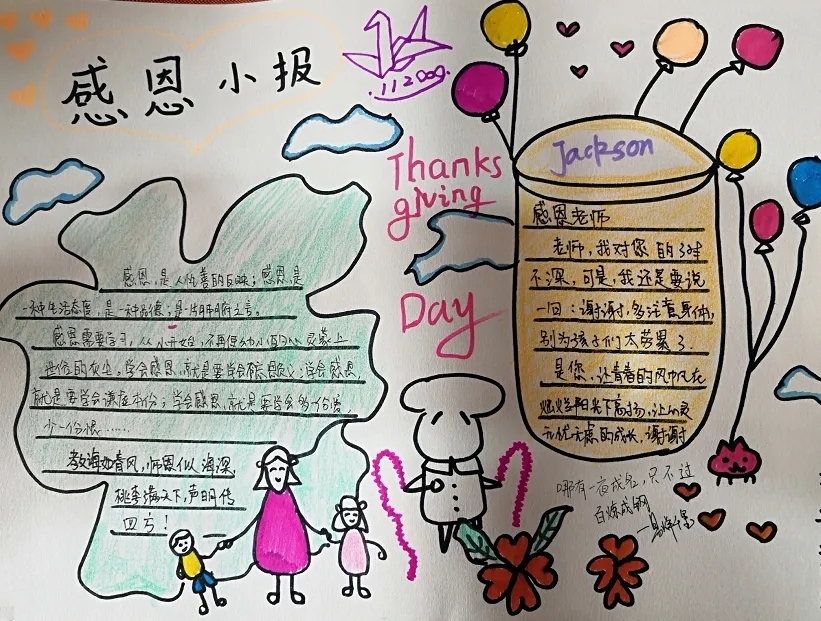 感恩小报
.11200g.
Thanks
giving
Day
Jackson
感恩老师
老师，我对您的了解
不深，可是，我还是要说
一回：谢谢谢，多注意身体，
别为孩子们太劳累了.
是您，让青春的风帆在
阳光下高扬，让心灵
无忧无虑的成长，谢谢
哪有一夜成名，只不过
百炼成钢
感恩，是人性善的反映；感恩，是
一种生活态度，是一种品德；是一片肺腑之言。
感恩需要学习，从小开始，不再使幼小的心灵蒙上
世俗的灰尘，学会感恩，就是要学会
就是要学会谦虚本份；学会感恩，就是要学会多一份
少一份恨……
教诲如春风，师恩似海深，
桃李满天下，声明传
四方！